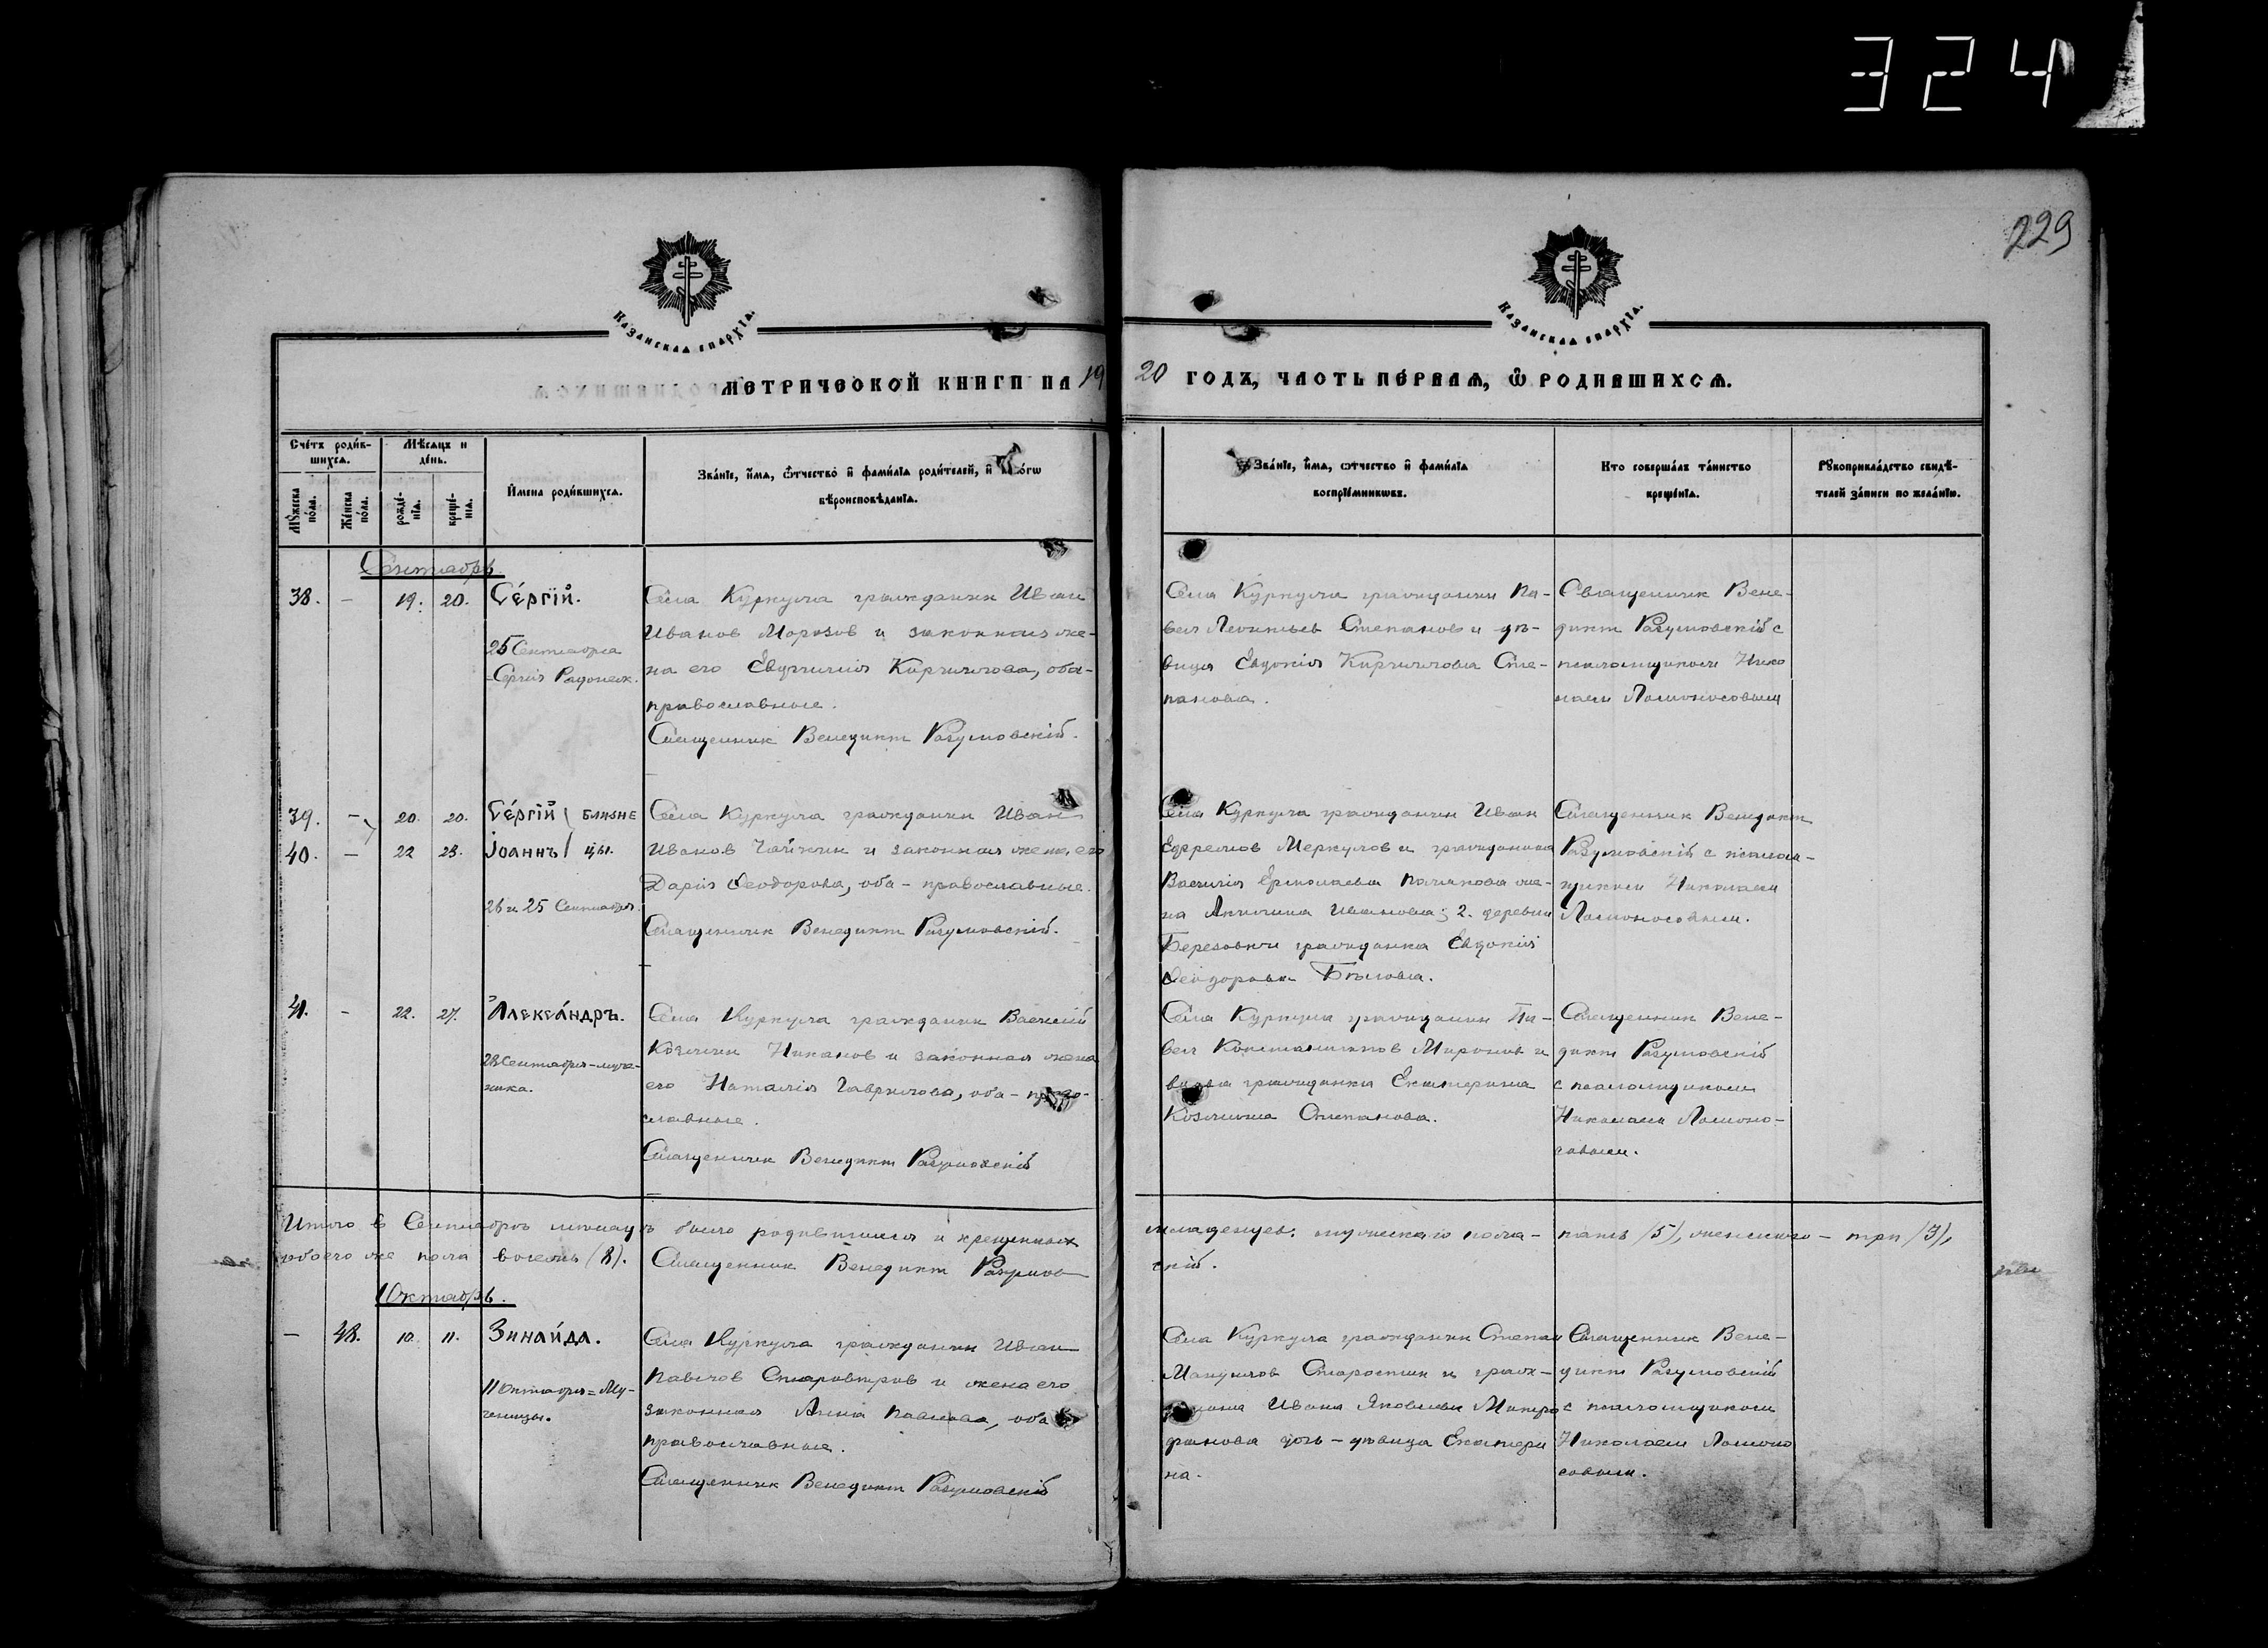 324
229
Казанская епархїа.
Казанская епархїа.
МЕТРИЧЕСКОЙ КНИГИ НА 19
20 ГОДЪ, ЧАСТЬ ПЕРВАЯ, Ѡ РОДИВШИХСЯ.
Счетъ роди́в-
шихся.
Мѣсяцъ и
де́нь.
Мꙋ́жеска по́ла.
Же́нска по́ла.
рожде́-нїя.
креще́-нїя.
И́мена роди́вшихся.
Зва́нїе, и́мя, ѻ́тчество и҆ фами́лїа роди́телей, и҆
вѣроисповѣ́данїя.
Зва́нїе, и́мя, ѻтчество и҆ фами́лїа
воспрїе́мникѡвъ.
Кто соверша́лъ та́инство
креще́нїя.
Рꙋкоприкла́дство свидѣ́-
телей за́писи по жела́нїю.
Сентябрь
38. - 19. 20. Се́ргїй.
25 Сентября
Сергія Радонеж.
Села Куркула гражданин Иван
Иванов Морозов и законная же-
на его Евдокимія Кириллова, оба-
православные.
Священник Венедикт Разумовскій.
Села Куркула гражданин Па-
вел Леонтьев Степанов и дѣ-
вица Евдокія Кириллова Сте-
панова.
Священник Вене-
дикт Разумовскій с
псаломщиком Нико
лаем Ломоносовым
39. - 20. 20. Се́ргїй
40. - 22 23. Іоаннъ
БЛИЗНЕ
ЦЫ.
26 и 25 Сентября.
Села Куркула гражданин Иван
Иванов Чайкин и законная жена его
Дарія Ѳеодорова, оба - православные.
Священник Венедикт Разумовскій.
Села Куркула гражданин Иван
Ефремов Меркулов и гражданина
Василія Ермолаева Полякова же-
на Акилина Иванова; 2. деревни
Березовки гражданка Евдокія
Ѳеодорова Бѣлова.
Священник Венедикт
Разумовскій с псалом-
щиком Николаем
Ломоносовым.
41. - 22. 27. Алекса́ндръ.
28 Сентября - муче-
ника.
Села Куркула гражданин Василій
Козьмин Никанов и законная жена
его Наталія Гаврилова, оба - право-
славные.
Священник Венедикт Разумовскій
Села Куркула гражданин Па-
вел Константинов Миронов и
вдова гражданка Екатерина
Козьмина Степанова.
Священник Вене-
дикт Разумовскій
с псаломщиком
Николаем Ломоно-
совым.
Итого в Сентябрѣ мѣсяцѣ было родившихся и крещенных
младенцев: мужскаго пола - пять (5), женскаго - три (3),
обоего же пола восемь (8). Священник Венедикт Разумов
скій.
Октябрь.
- 48. 10. 11. Зинаи́да.
11 Октября = Му-
ченицы.
Села Куркула гражданин Иван
Павлов Староверов и жена его
законная Анна Павлова, оба
православные.
Священник Венедикт Разумовскій
Села Куркула гражданин Степан
Мануилов Старостин и граж-
Ивана Яковлева Митро
фанова дочь - дѣвица Екатери
на.
Священник Вене-
дикт Разумовскій
с псаломщиком
Николаем Ломоно
совым.